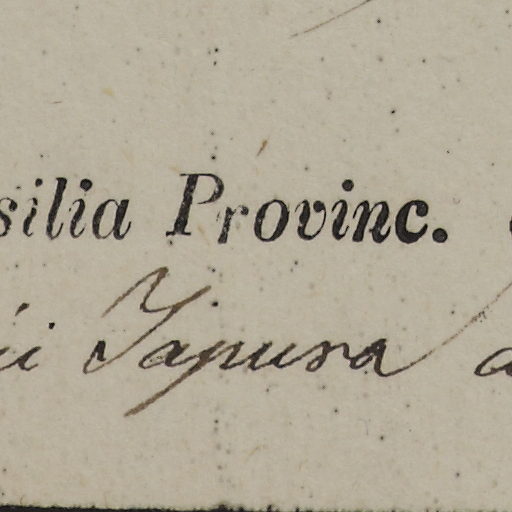 silia Provinc.
ii Japura a